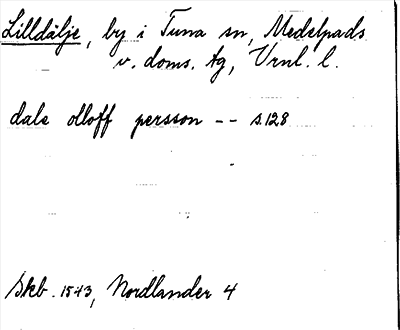 Lilldälje, by i Tuna sn, Medelpads
v. doms. tg, Vrnl. l.
dale olloff persson -- s. 128
Skb. 1543, Nordlander 4